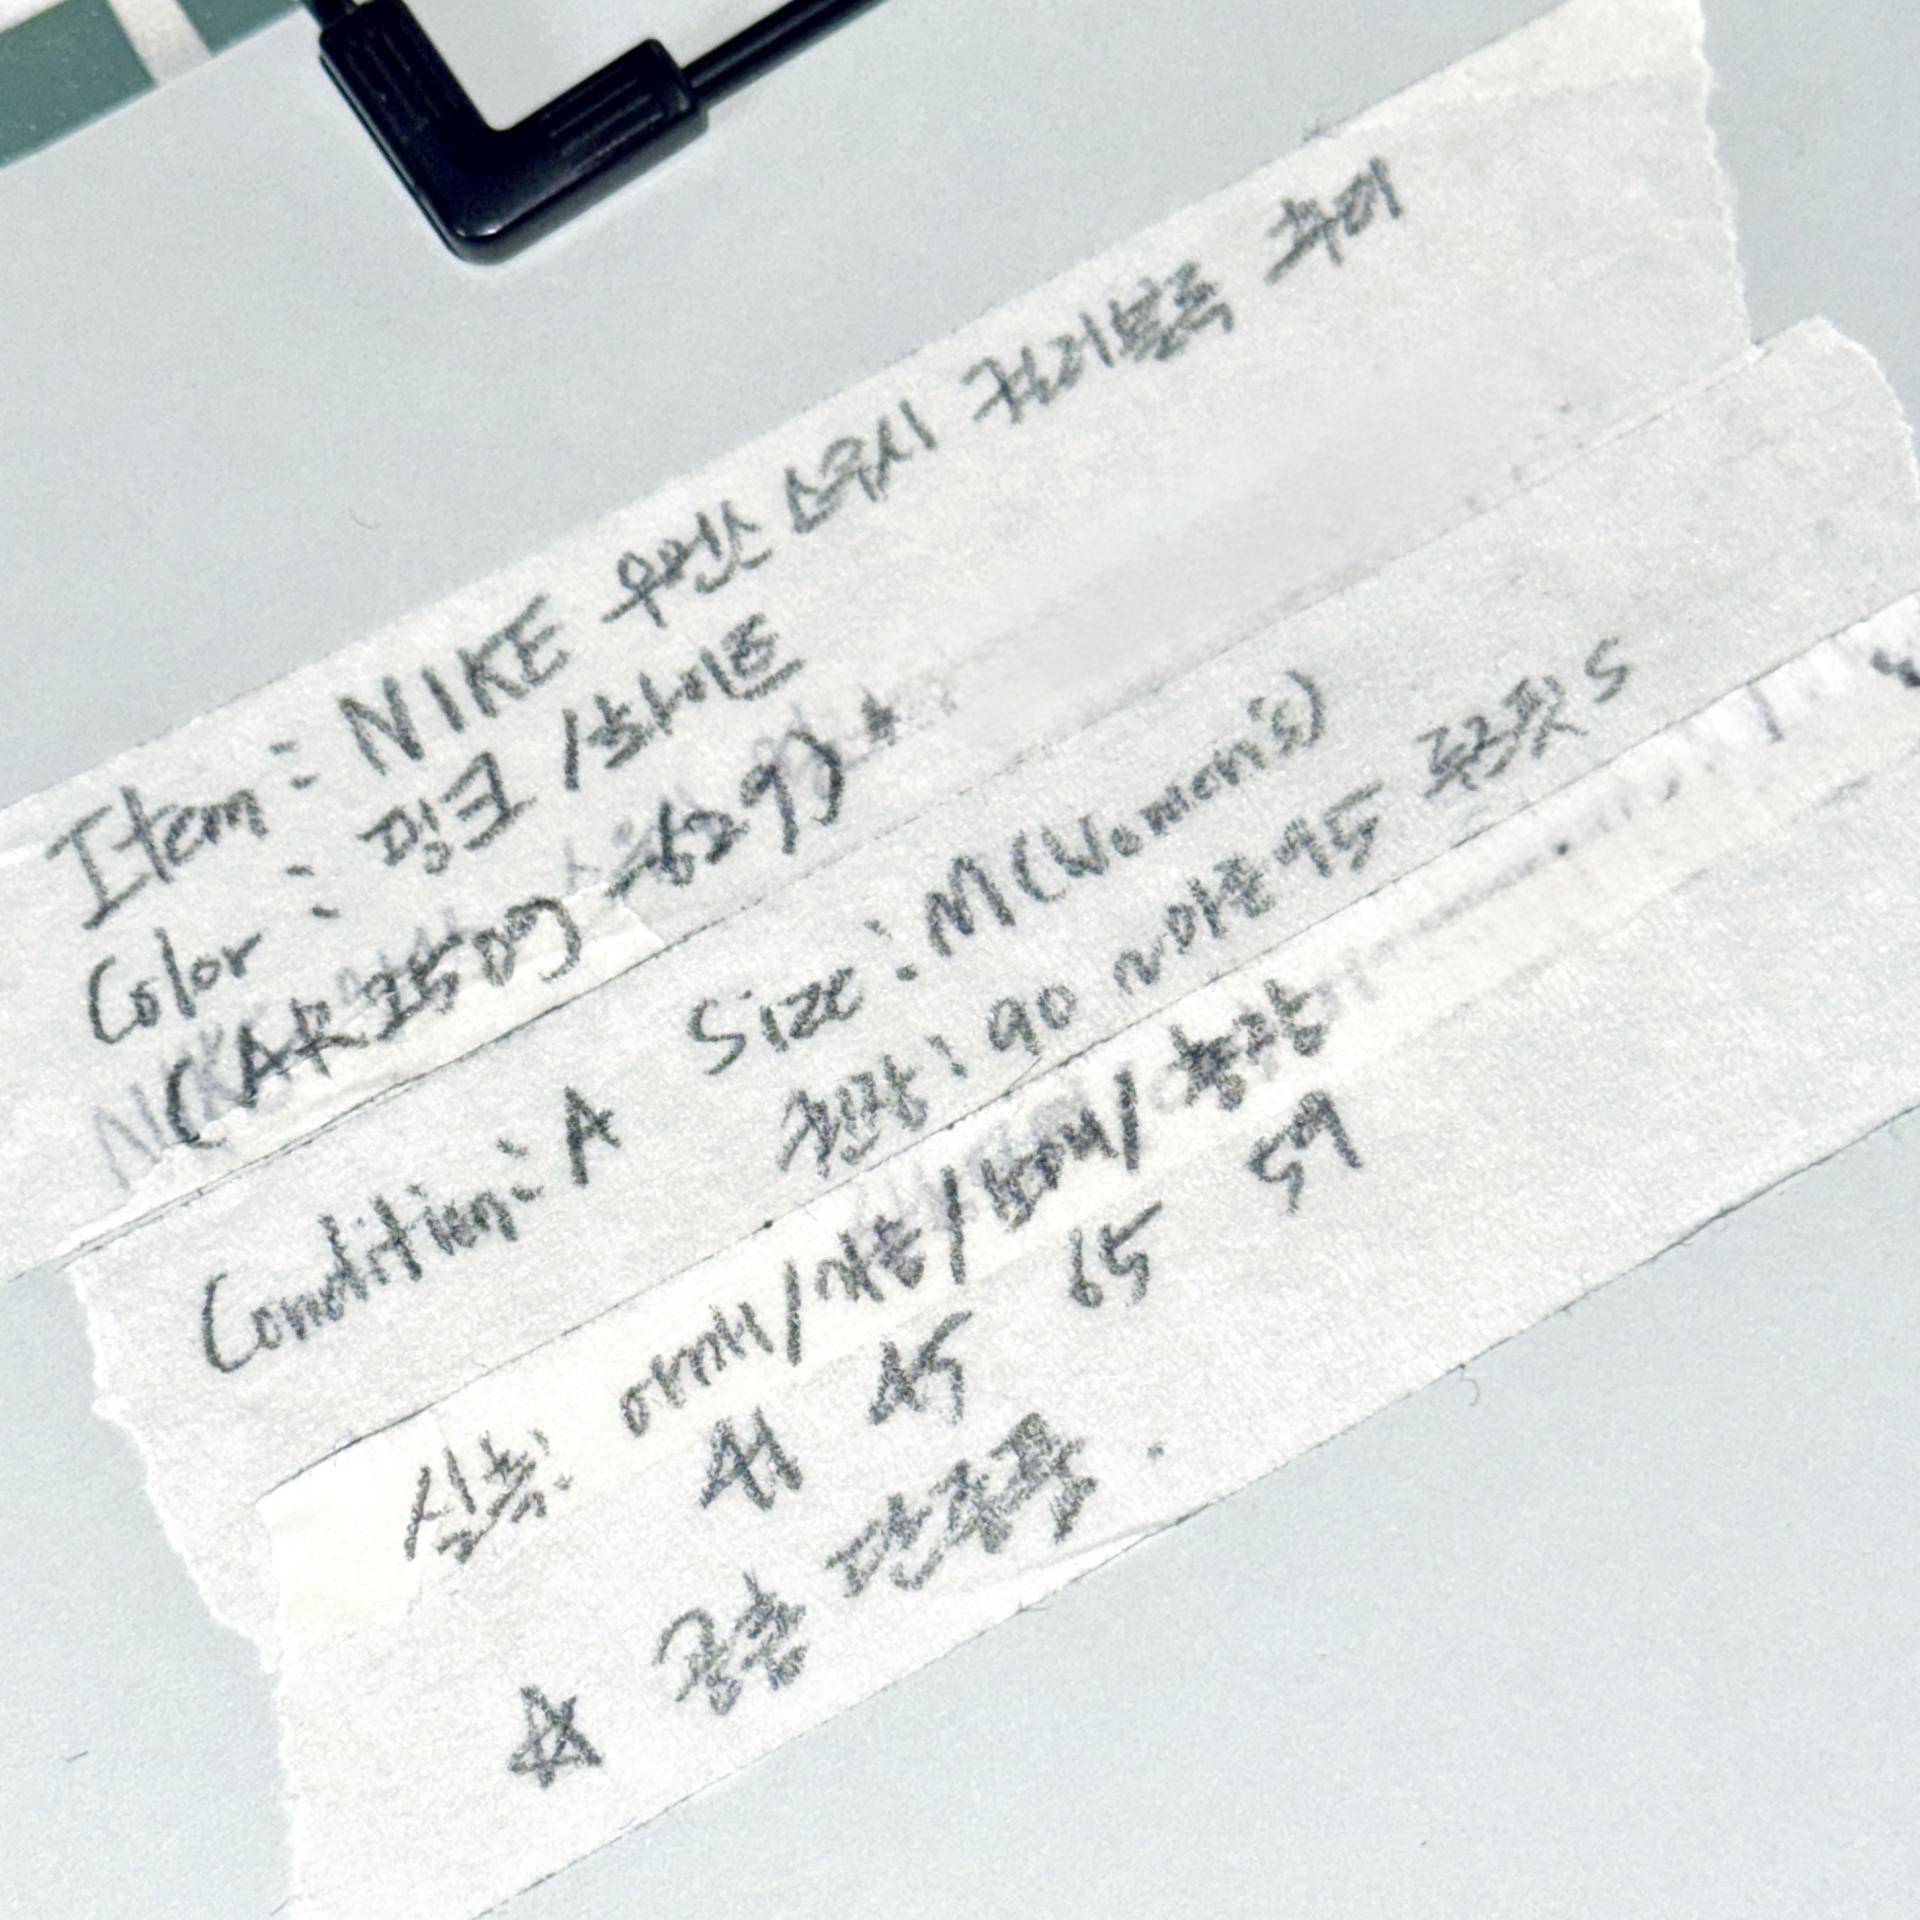 Item: NIKE 우먼스 스우시 컬러블록 후디
Color: 핑크/화이트
(AR3509-629)
Condition: A Size: M(Women's)
권장: 90~마른95 루즈핏 S
실측: 어깨/가슴/소매/총장
44 45 65 59
☆ 공홈 단종품.